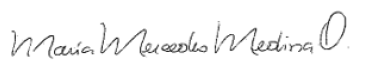 Maria Mercedes Medina O.